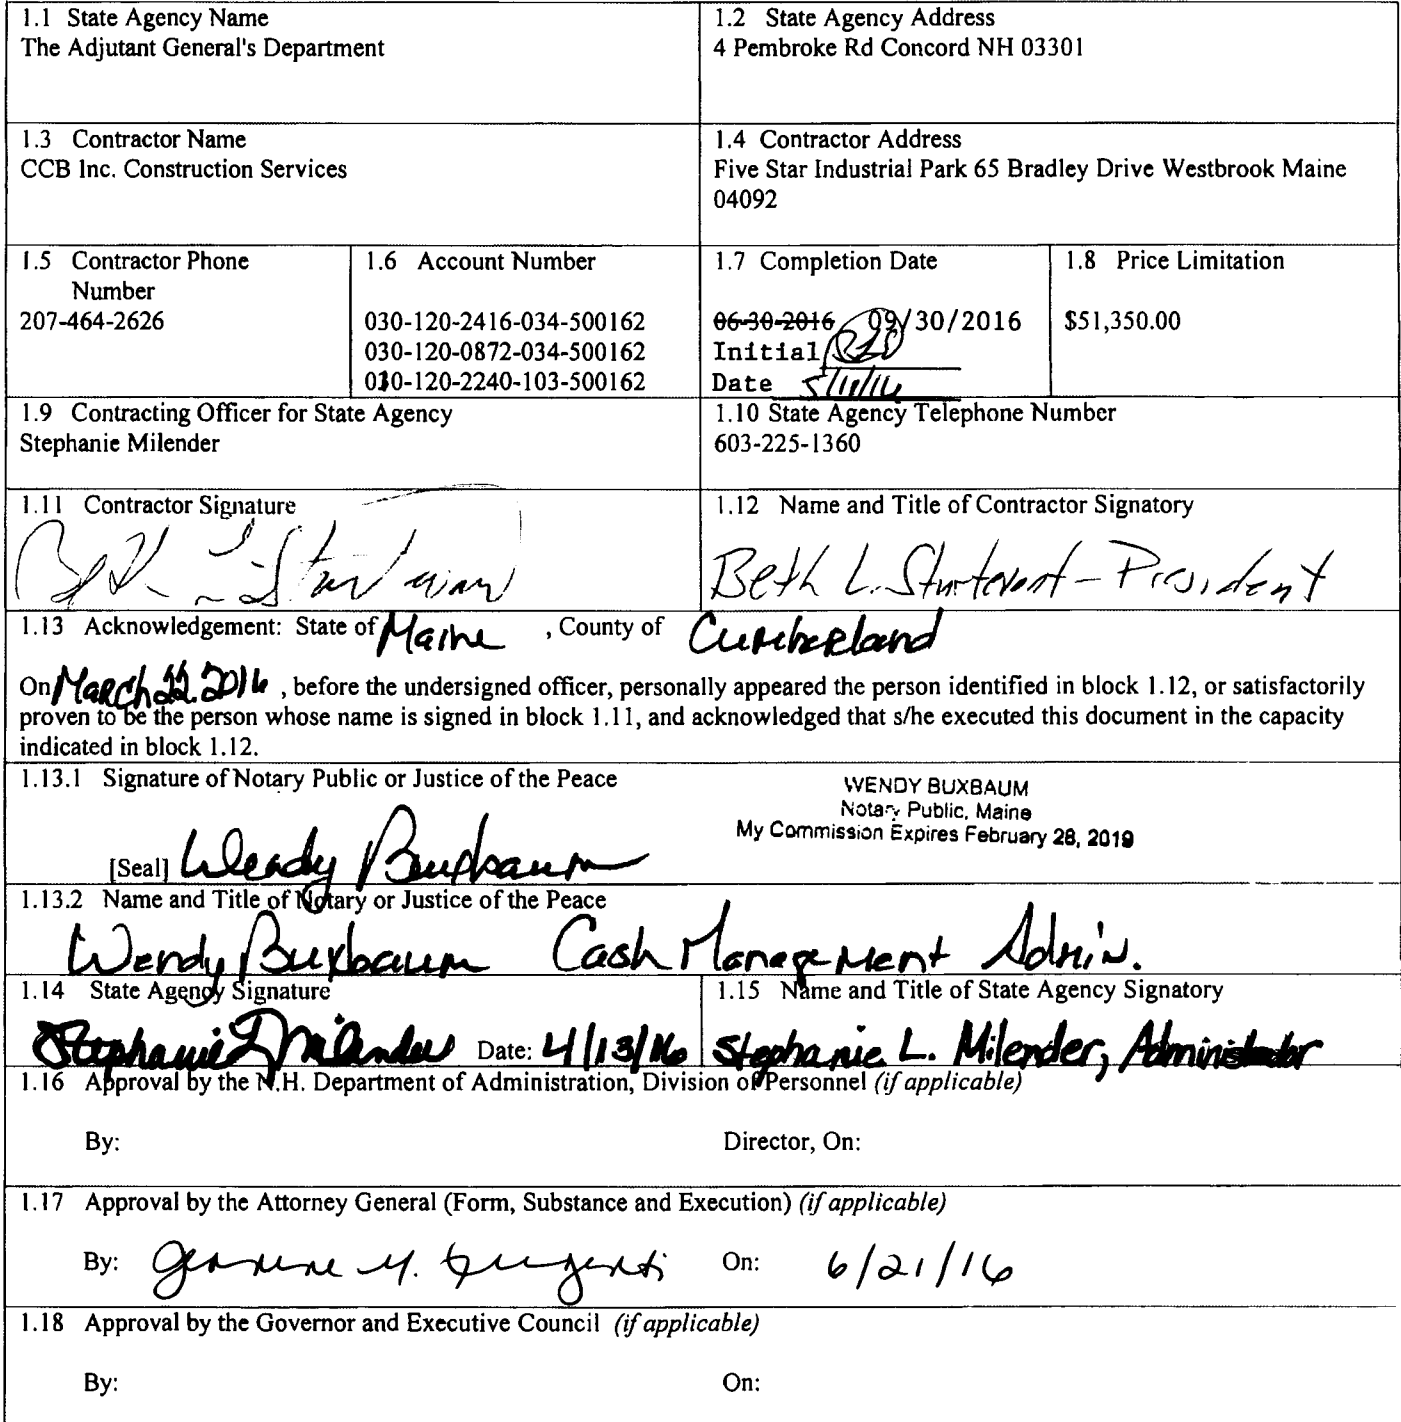 1.1 State Agency Name
The Adjutant General's Department
1.2 State Agency Address
4 Pembroke Rd Concord NH 03301
1.3 Contractor Name
CCB Inc. Construction Services
1.4 Contractor Address
Five Star Industrial Park 65 Bradley Drive Westbrook Maine
04092
1.5 Contractor Phone
Number
207-464-2626
1.6 Account Number
030-120-2416-034-500162
030-120-0872-034-500162
010-120-2240-103-500162
1.7 Completion Date
06-30-2016 09/30/2016
Initial
Date 5/11/16
1.8 Price Limitation
$51,350.00
1.9 Contracting Officer for State Agency
Stephanie Milender
1.10 State Agency Telephone Number
603-225-1360
1.11 Contractor Signature
Beth L Sturtevant
1.12 Name and Title of Contractor Signatory
Beth L. Sturtevant - President
1.13 Acknowledgement: State of Maine , County of Cumberland
On March 22 2016 , before the undersigned officer, personally appeared the person identified in block 1.12, or satisfactorily
proven to be the person whose name is signed in block 1.11, and acknowledged that s/he executed this document in the capacity
indicated in block 1.12.
1.13.1 Signature of Notary Public or Justice of the Peace
WENDY BUXBAUM
Notary Public, Maine
My Commission Expires February 28, 2019
[Seal] Wendy Buxbaum
1.13.2 Name and Title of Notary or Justice of the Peace
Wendy Buxbaum Cash Management Admin.
1.14 State Agency Signature
Stephanie L Milender Date: 4/13/16
1.15 Name and Title of State Agency Signatory
Stephanie L. Milender, Administrator
1.16 Approval by the N.H. Department of Administration, Division of Personnel (if applicable)
By:
Director, On:
1.17 Approval by the Attorney General (Form, Substance and Execution) (if applicable)
By:
On: 6/21/16
1.18 Approval by the Governor and Executive Council (if applicable)
By:
On: